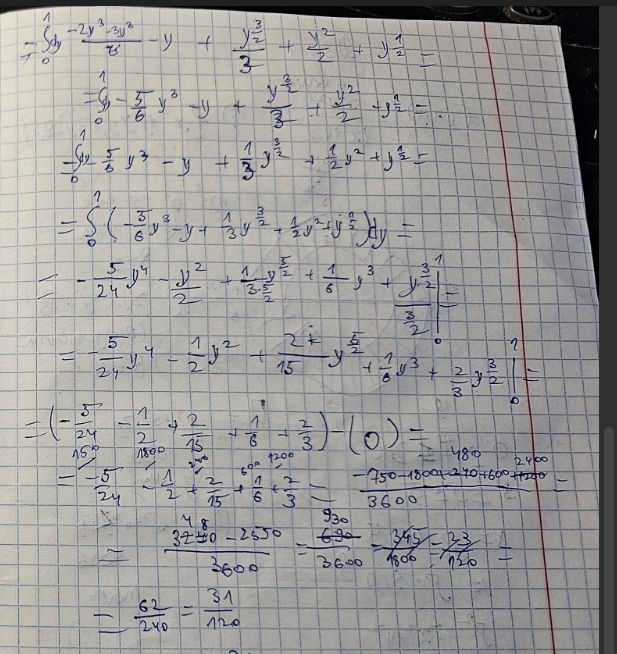 = ∫₀¹ dy (-2y³-3y³)/6 - y + y^(3/2)/3 + y²/2 + y^(1/2) =
= ∫₀¹ - 5/6 y³ - y + y^(3/2)/3 + y²/2 + y^(1/2) =
= ∫₀¹ - 5/6 y³ - y + 1/3 y^(3/2) + 1/2 y² + y^(1/2) =
= ∫₀¹ (-5/6 y³ - y + 1/3 y^(3/2) + 1/2 y² + y^(1/2)) dy =
= - 5/24 y⁴ - y²/2 + 1/(3·5/2) y^(5/2) + 1/6 y³ + y^(3/2)/(3/2) |₀¹ =
= - 5/24 y⁴ - 1/2 y² + 2/15 y^(5/2) + 1/6 y³ + 2/3 y^(3/2) |₀¹ =
= (- 5/24 - 1/2 + 2/15 + 1/6 + 2/3) - (0) =
= - 5/24 - 1/2 + 2/15 + 1/6 + 2/3 = (-750-1800+480+600+2400)/3600 =
= (3480 - 2550)/3600 = 930/3600 = 345/1800 = 23/120 =
= 62/240 = 31/120